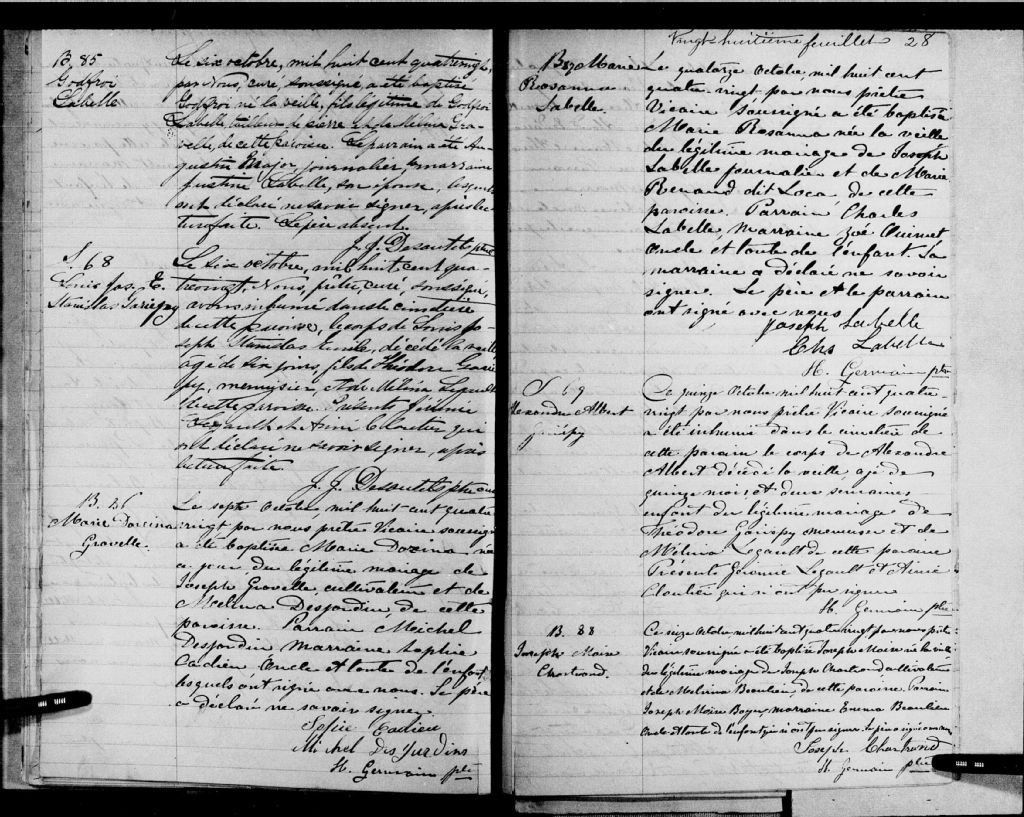 B. 85
Godfroi
Labelle
Le six octobre, mil huit cent quatrevingt,
par Nous, curé, soussigné, a été baptisé
Godfroi né la veille, fils légitime de Godfroi
Labelle, tailleur de pierre et de Mélina Gra-
velle, de cette paroisse. Le parrain a été Au-
gustin Major, journalier, la marraine
Justine Labelle, son épouse, lesquels
ont déclaré ne savoir signer, après lec-
ture faite. Le père absent.
J. J. Desautels ptre
S. 68
Louis Jos. E.
Stanislas Gariépy
Le six octobre, mil huit cent qua-
trevingt, Nous, prêtre, curé, soussigné,
avons inhumé dans le cimetière
de cette paroisse, le corps de Louis Jo-
seph Stanislas Emile, décédé la veille,
agé de six jours, fils de Théodore Garié-
py, menuisier, et de Mélina Legault
de cette paroisse. Présents Jérémie
Legault et Aimé Cloutier qui
ont déclaré ne savoir signer, après
lecture faite.
J. J. Desautels ptre curé
B. 86
Marie Dorzina
Gravelle.
Le sept Octobre mil huit cent quatre
vingt par nous prêtre Vicaire soussigné
a été baptisée Marie Dorzina née
ce jour du légitime mariage de
Joseph Gravelle cultivateur et de
Melina Desjardin de cette
paroisse. Parrain Meichel
Desjardin marraine Sophie
Cadieu Oncle et tante de l'enfant
lesquels ont signé avec nous. Le père
a déclaré ne savoir signer
Sofie Cadieu
Michel Des Jardins
H. Germain ptre
Vingt huitième feuillet 28
B 87 Marie
Rosanna
Labelle.
Le quatorze Octobre mil huit cent
quatre-vingt par nous prêtre
Vicaire soussigné a été baptisée
Marie Rosanna née la veille
du légitime mariage de Joseph
Labelle journalier et de Marie
Renaud dit Loca de cette
paroisse. Parrain Charles
Labelle, marraine Zoé Ouimet
Oncle et tante de l'enfant. La
marraine a déclaré ne savoir
signer. Le père et le parrain
ont signé avec nous
Joseph Labelle
Chs Labelle
H. Germain ptre
S 69
Alexandre Albert
Gariépy
Le quinze Octobre mil huit cent quatre-
vingt par nous prêtre Vicaire soussigné
a été inhumé dans le cimetière de
cette paroisse le corps de Alexandre
Albert décédé la veille, agé de
quinze mois et deux semaines
enfant du légitime mariage de
Théodore Gariépy menuisier et de
Mélina Legault de cette paroisse
Présents Jérémie Legault et Aimé
Cloutier qui n'ont pu signer
H. Germain ptre
B. 88
Joseph Moise
Chartrand.
Le seize Octobre mil huit cent quatre vingt par nous prêtre
Vicaire soussigné a été baptisé Joseph Moise né la veille
du légitime mariage de Joseph Chartrand cultivateur
et de Melvina Beaulieu, de cette paroisse. Parrain
Joseph Moise Boyer, marraine Emma Beaulieu
Oncle et tante de l'enfant qui n'ont pu signer. Le père a signé avec nous
Joseph Chartrand
H. Germain ptre